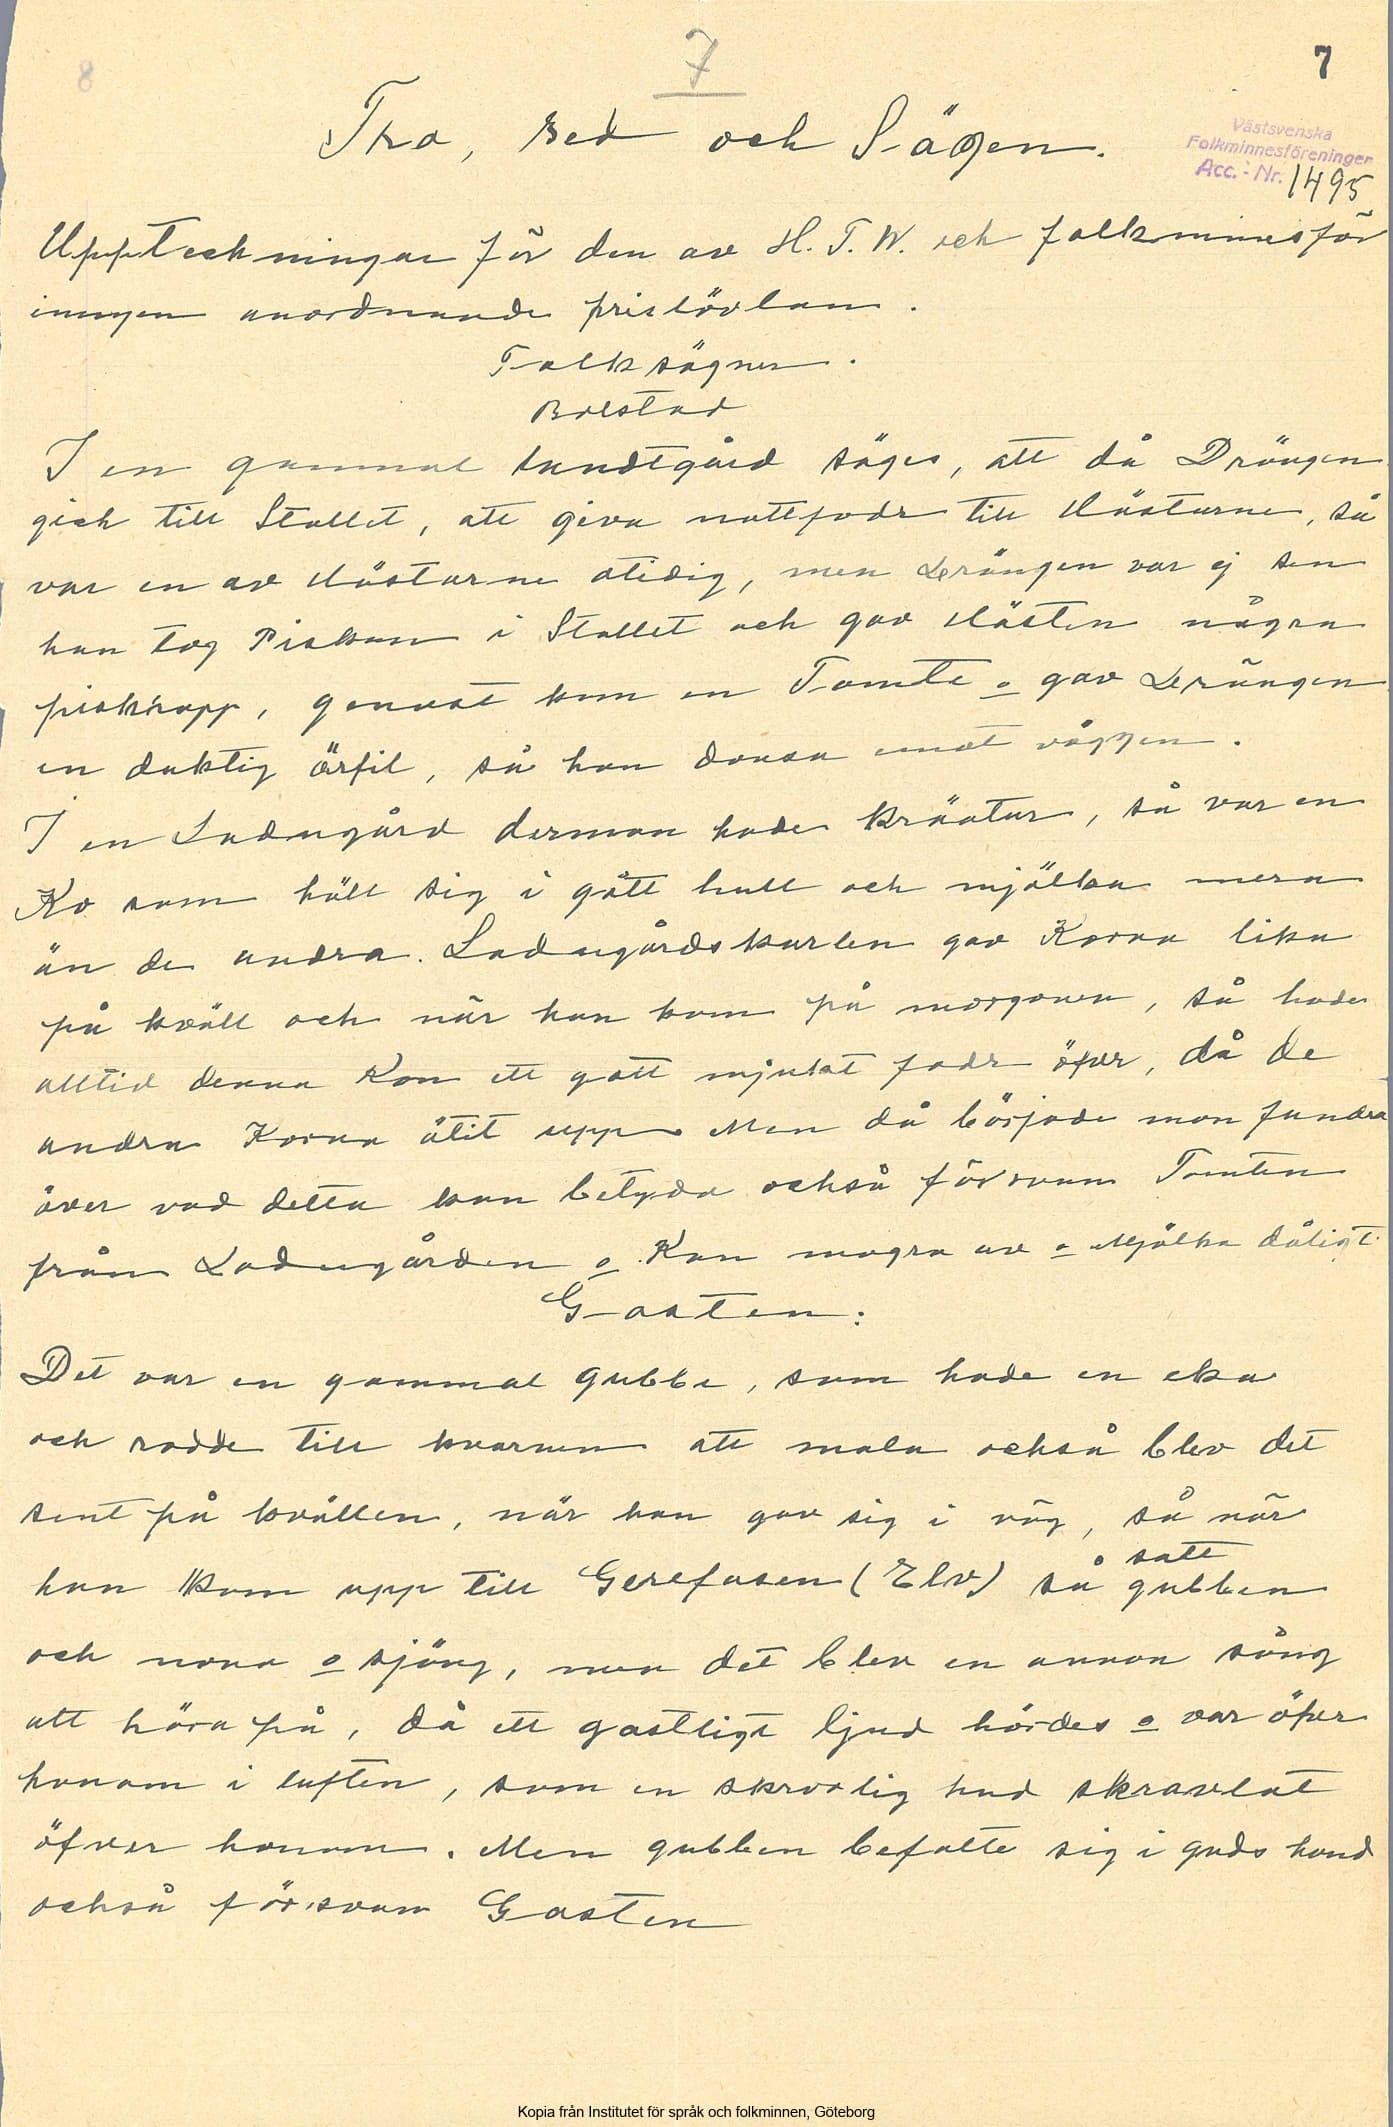 7
7
8
Tro, sed och Sägen.
Västsvenska
Folkminnesföreningen
Acc. - Nr. 1495
Uppteckningar för den av H. T. W. och folkminnesför
ningen anordnande pristävlan.
Folksägner.
Bolstad
I en gammal landtgård säges, att då Drängen
gick till Stallet, att giva nattfodr till Hästarne, så
var en av Hästarne otidig, men Drängen var ej sen
han tog Piskan i Stallet och gav Hästen några
piskrapp, genast kom en Tomte o gav Drängen
en duktig örfil, så han dansa emot väggen.
I en Ladugård derman hade kräatur, så var en
Ko som höll sig i gått hull och mjölka mera
än de andra. Ladugårdskarlen gav Korna lika
på kväll och när han kom på morgonen, så hade
alltid denna Kon ett gott mjukt fodr öfver, då de
andra Korna ätit upp. Men då började man fundra
över vad detta kan betyda också försvann Tomten
från Ladugården o Kon magra av o Mjölka dåligt.
Gasten:
Det var en gammal gubbe, som hade en eka
och rodde till kvarnen att mala också blev det
sent på kvällen, när han gav sig i väg, så när
han kom upp till Gerefasen (Elv) så satt gubben
och nona o sjöng, men det blev en annan sång
att höra på, då ett gastligt ljud hördes o var öfver
honom i luften, som en skrovlig hud skravlat
öfver honom. Men gubben befalte sig i guds hand
också försvann Gasten
Kopia från Institutet för språk och folkminnen, Göteborg